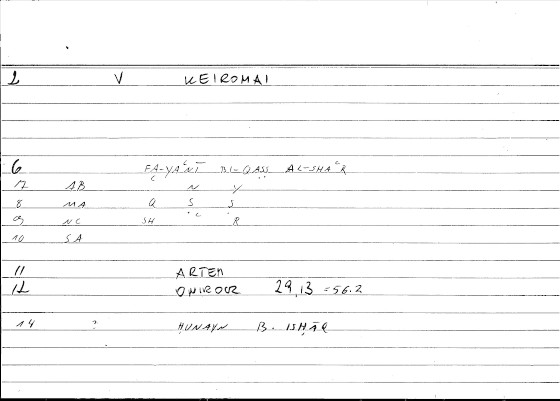 1 V KEIROMAI
6 FA-YAʿNĪ BL-QAṢṢ AL-SHAʿR
7 AB N Y
8 MA Q Ṣ Ṣ
9 NC SH ʿ R
10 SA
11 ARTEM
12 ONIROCR 29,13 =56.2
14 ? ḤUNAYN B. ISḤĀQ